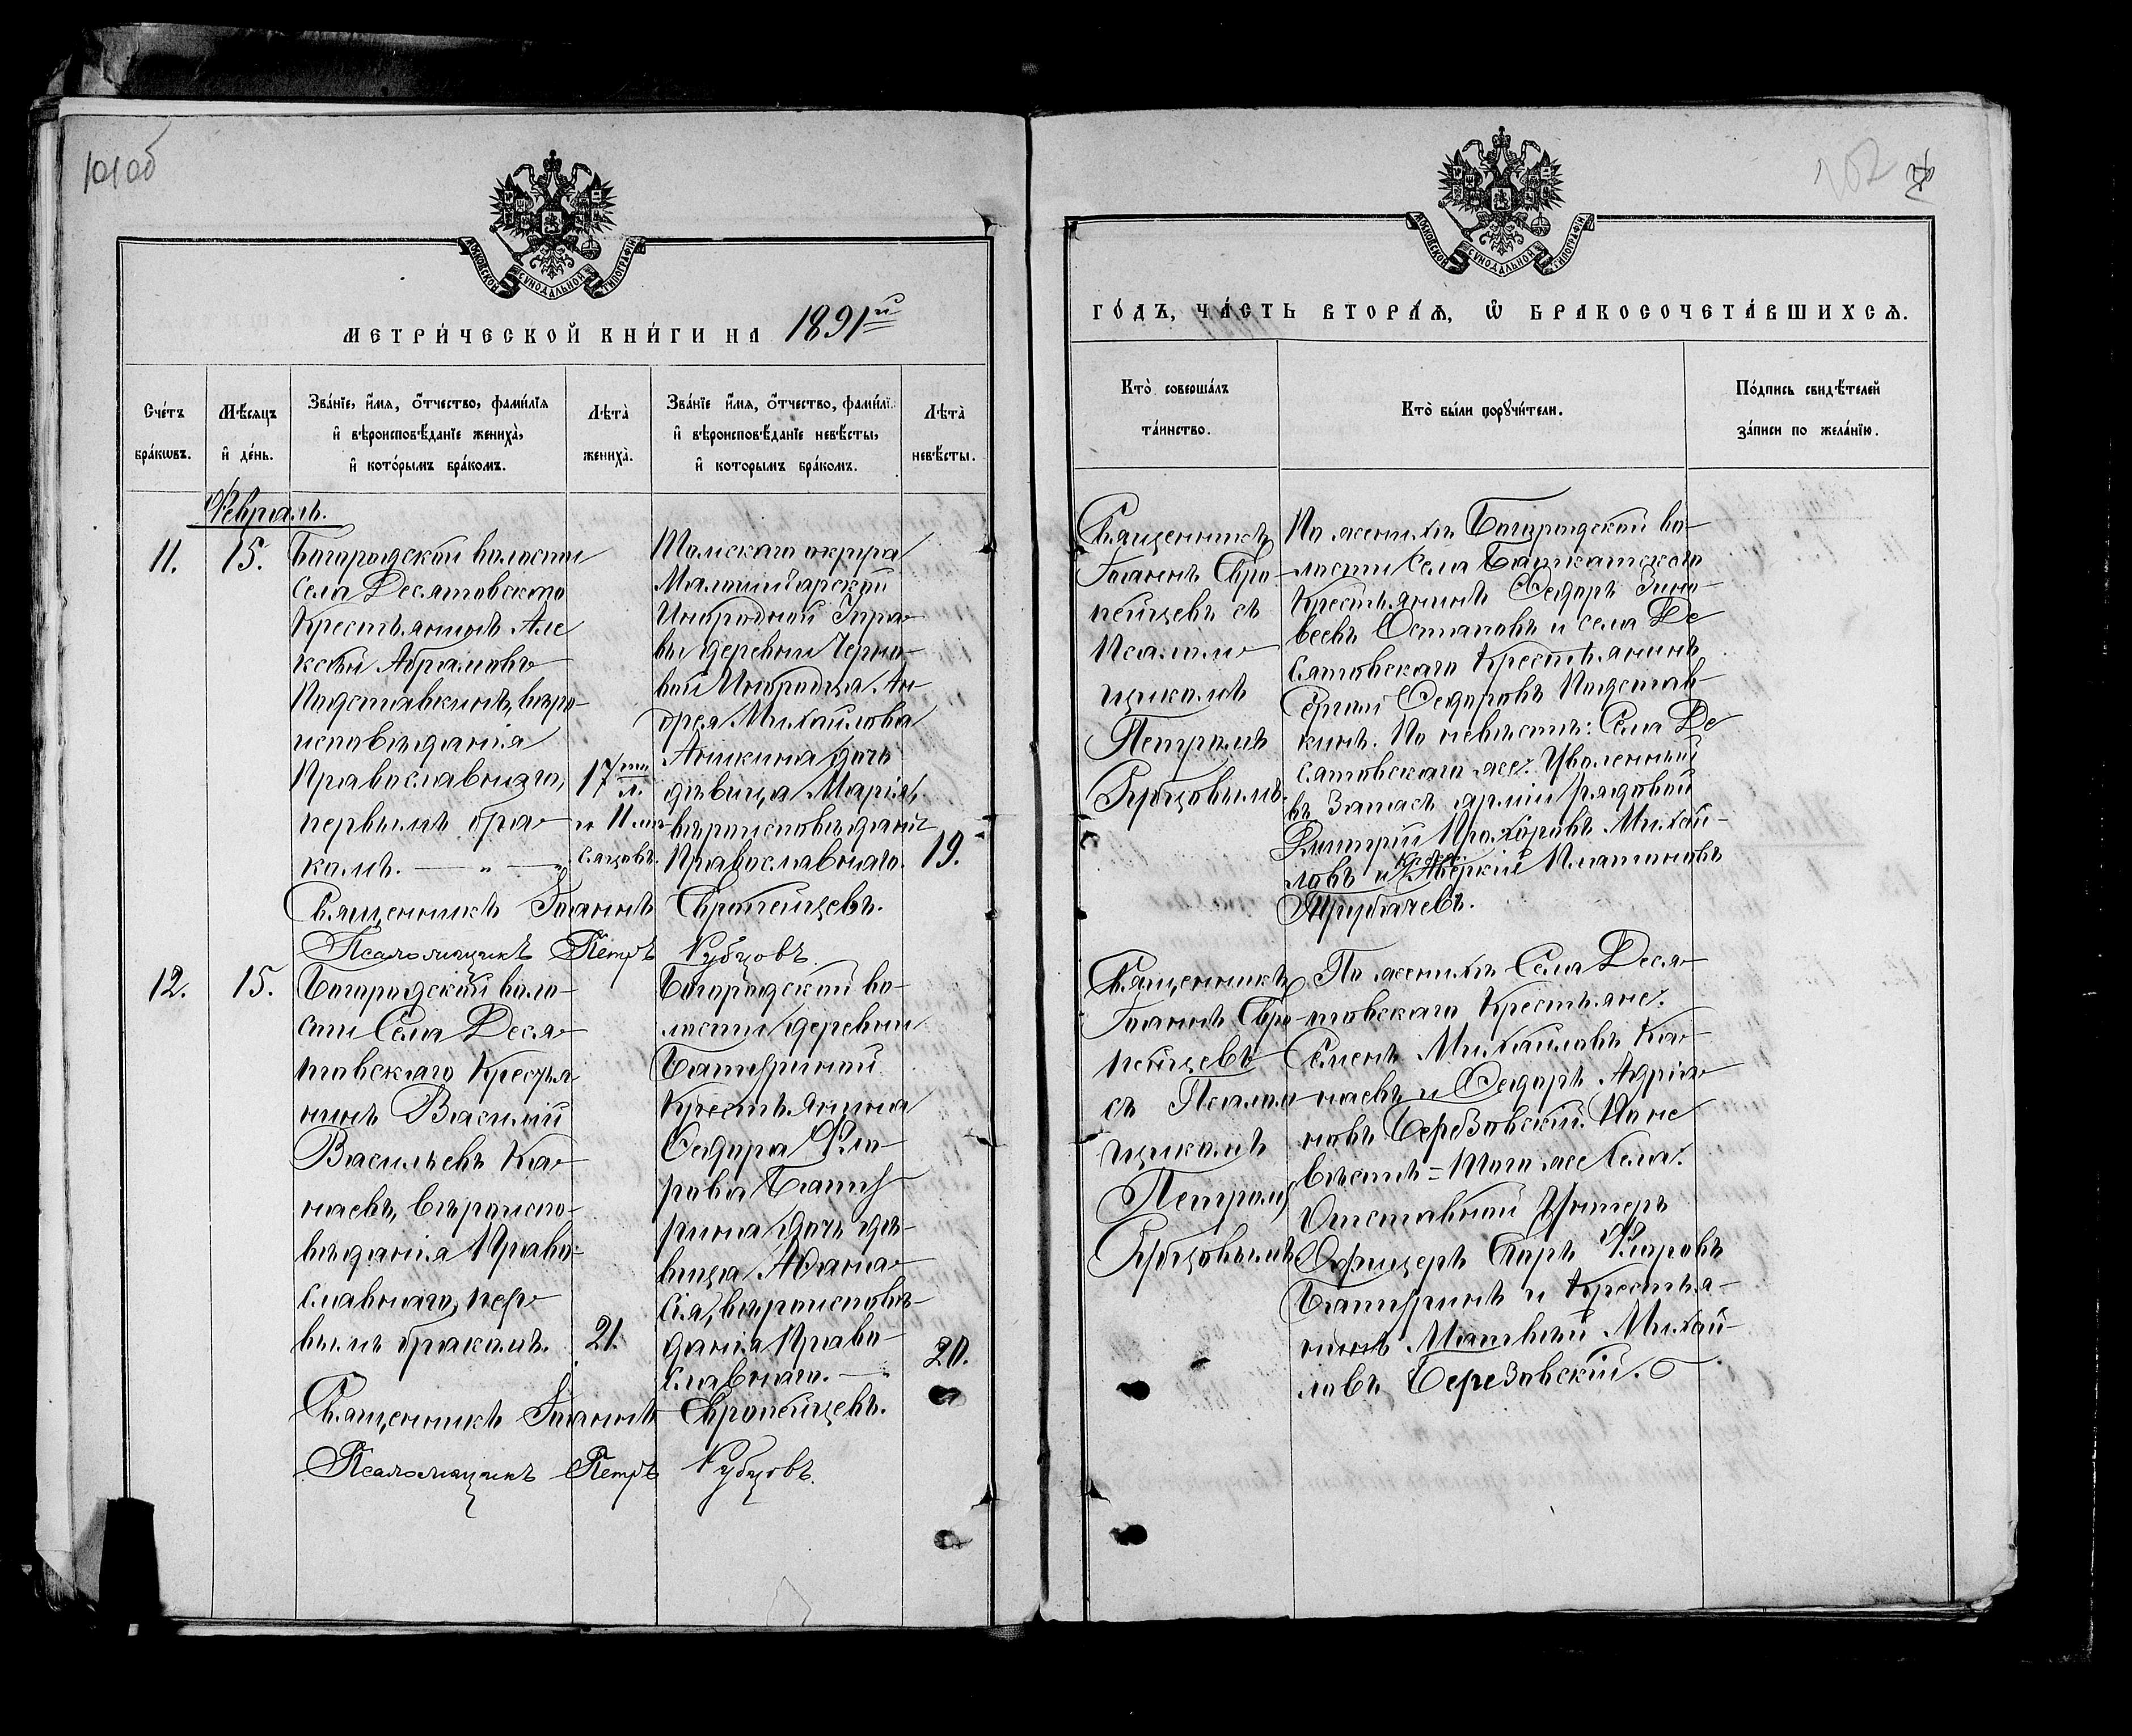 101об
102
МОСКОВСКОЙ СѴНОДАЛЬНОЙ ТИПОГРАФІИ
МЕТРИ́ЧЕСКОЙ КНИ́ГИ НА 1891й
Сче́тъ бра́кѡвъ.
Мѣ́сяцъ и҆ де́нь.
Зва́нїе, и҆́мя, ѻ҆́тчество, фами́лїя
и҆ вѣроисповѣ́данїе жениха̀,
и҆ кото́рымъ бра́комъ.
Лѣта̀ жениха̀.
Зва́нїе и҆́мя, ѻ҆́тчество, фами́лї.
и҆ вѣроисповѣ́данїе невѣ́сты,
и҆ которымъ бра́комъ.
Лѣта̀ невѣ́сты.
Февраль.
11.
15.
Богородской волости
села Десятовскаго
Крестьянинъ Але
ксѣй Абрамовъ
Подставкинъ, вѣро-
исповѣданія
Православнаго,
первымъ бра-
комъ. — „ —
17ти л.
и 11 мѣ-
сяцовъ.
Томскаго округа
Инородной Упра-
вы деревни Черно-
вой Инородца Ан-
дрея Михайлова
Аникина дочь
дѣвица Марія,
вѣроисповѣданія
Православнаго.
19.
Священникъ Іоаннъ Европейцевъ.
Псаломщикъ Петръ Рубцовъ.
12.
15.
Богородской воло-
сти Села Деся-
товскаго Крестья
нинъ Василій
Васильевъ Ка-
наевъ, вѣроиспо-
вѣданія Право-
славнаго, пер-
вымъ бракомъ.
21.
Богородской во-
лости деревни
Батуриной
Крестьянина
Федора Фло-
рова Бату
рина дочь дѣ-
вица Афана-
сія, вѣроисповѣ-
данія Право-
славнаго. —
20.
Священникъ Іоаннъ Европейцевъ.
Псаломщикъ Петръ Рубцовъ.
МОСКОВСКОЙ СѴНОДАЛЬНОЙ ТИПОГРАФІИ
ГО́ДЪ, ЧА́СТЬ ВТОРА́Я, Ѡ҆ БРАКОСОЧЕТА́ВШИХСЯ.
Кто̀ соверша́лъ
та́инство.
Кто̀ бы́ли порꙋчи́тели.
По́дпись свидѣ́телей
за́писи по жела́нїю.
Священникъ
Іоаннъ Евро-
пейцевъ съ
Псалом-
щикомъ
Петромъ
Рубцовымъ.
По женихѣ Богородской во-
лости Села Баткатскаго
Крестьянинъ Федоръ Зино-
веевъ Остаповъ и села Де
сятовскаго Крестьянинъ
Сергій Федоровъ Подстав-
кинъ. По невѣстѣ: Села Де
сятовскаго же: Уволенный
въ запасъ арміи рядовой
Дмитрій Прохоровъ Михай-
ловъ и Аверкій Платоновъ
Трубачевъ.
Священникъ
Іоаннъ Евро-
пейцевъ
съ Псалом-
щикомъ
Петромъ
Рубцовымъ
По женихѣ Села Деся-
товскаго Крестьяне:
Семенъ Михайловъ Ка-
наевъ и Федоръ Адріа-
новъ Березовскій. По не
вѣстѣ = Того же Села:
Отставной Унтеръ
Офицеръ Егоръ Флоровъ
Батуринъ и Крестья-
нинъ Матвѣй Михай-
ловъ Березовскій.